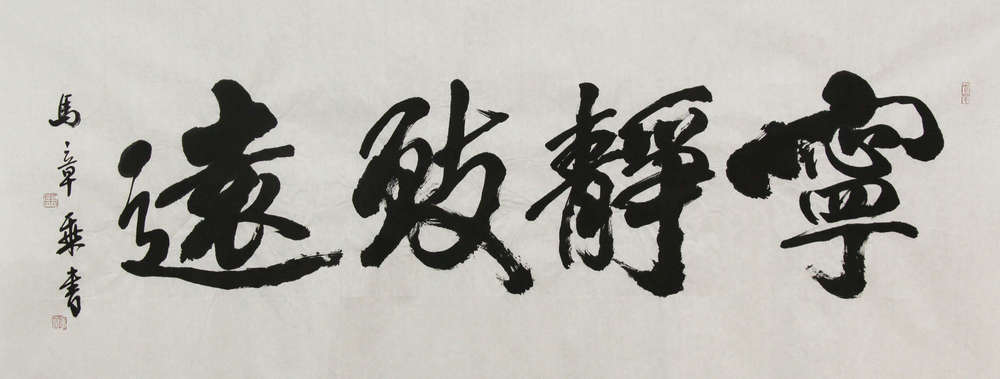 寧靜致遠
馬章乘書